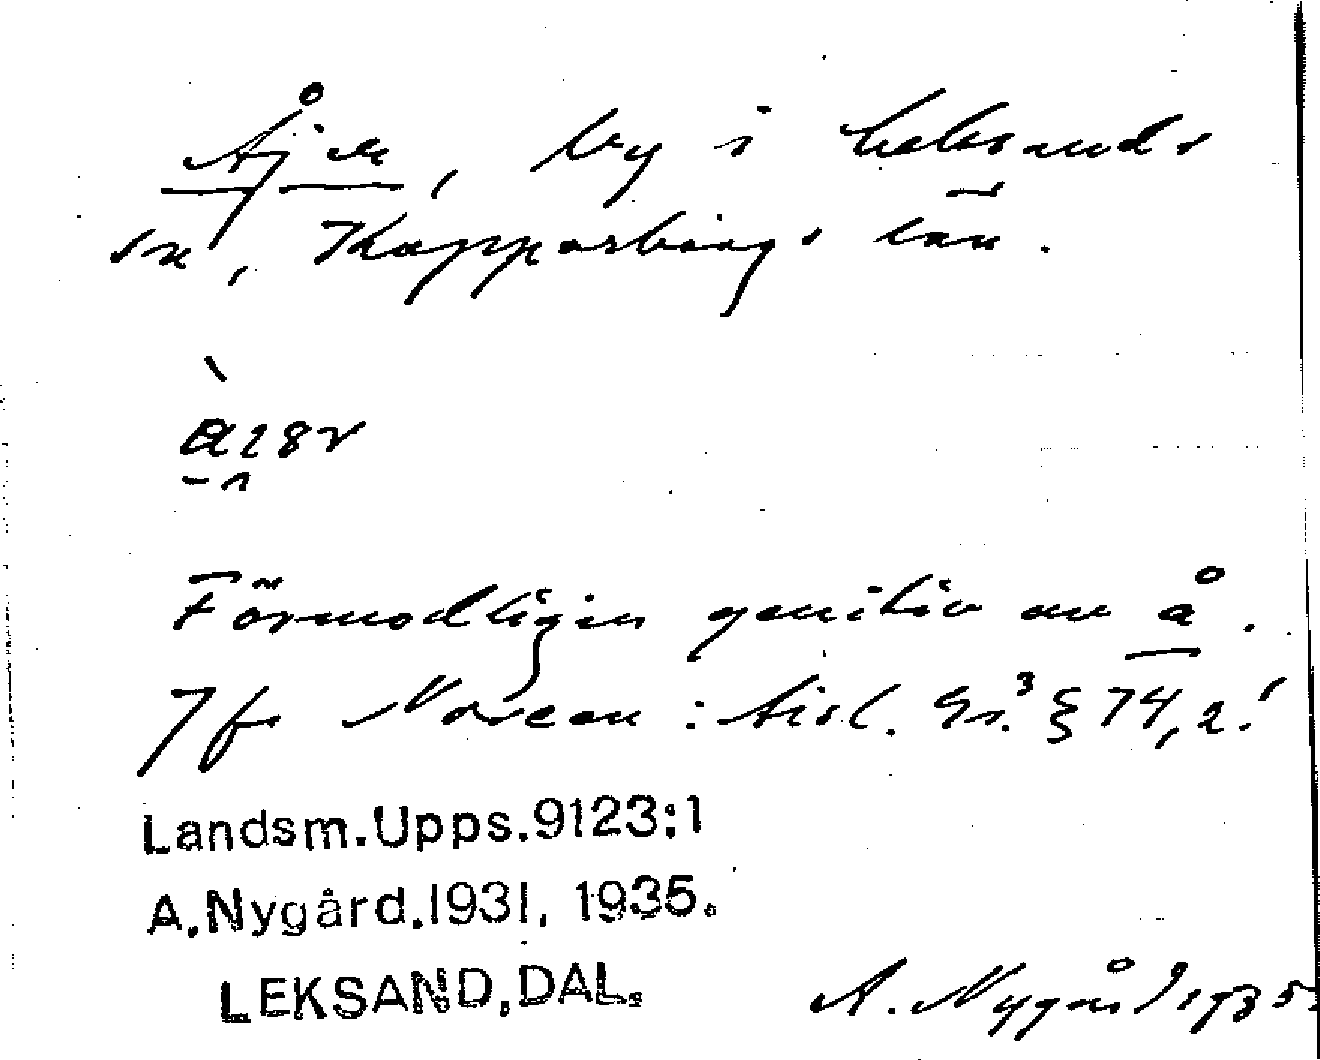 Åjer, by i Leksands
sn, Kopparbergs län.
Förmodligen genitiv av å.
Jfr Noreen: Aisl. Gr.³ § 74,2!
Landsm.Upps.9123:1
A.Nygård.1931, 1935.
LEKSAND,DAL.
A. Nygård 1935.